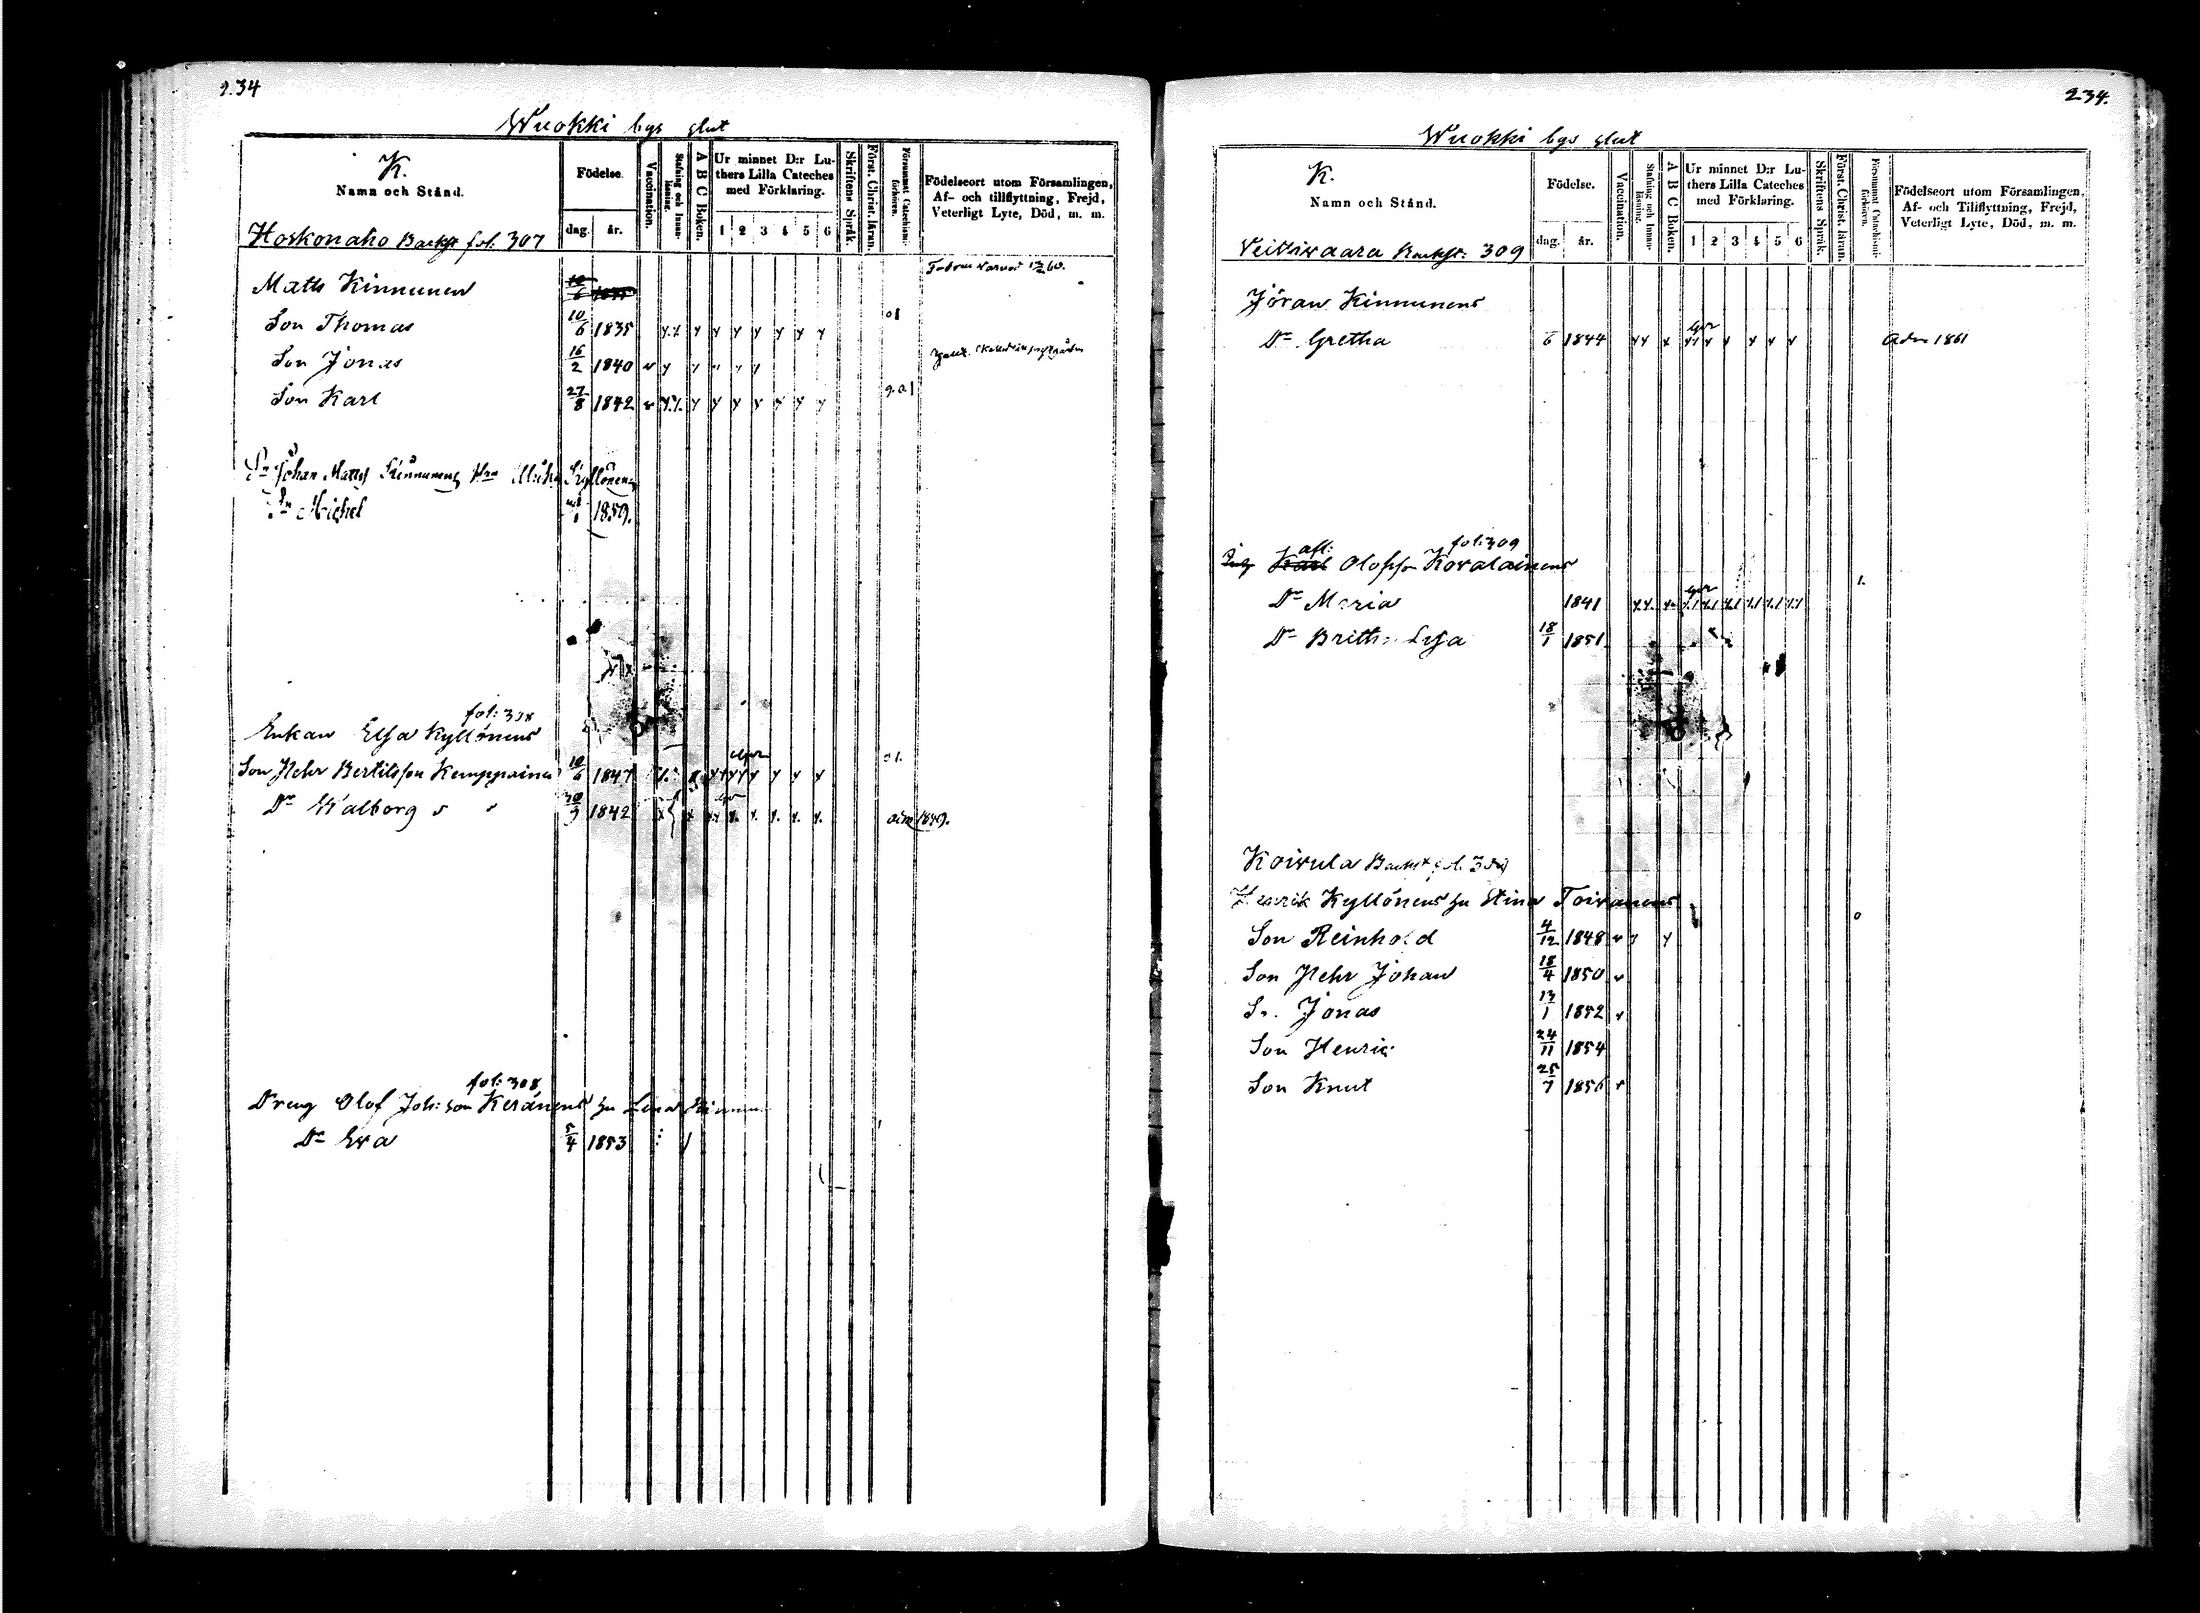 234
Wuokki bys slut
K.
Namn och Stånd.
Födelse.
dag. år.
Vaccination.
Stafning och Innan-läsning.
A B C Boken.
Ur minnet D:r Lu-
thers Lilla Cateches
med Förklaring.
1 2 3 4 5 6
Skriftens Språk.
Först. Christ. läran.
Försummat Catechismi-förhören.
Födelseort utom Församlingen,
Af- och tillflyttning, Frejd,
Veterligt Lyte, Död, m. m.
Hoskonaho Backst fol. 307
Matts Kinnunen
Son Thomas 10/6 1835
Son Jonas 16/2 1840
Son Karl 27/8 1842
Sn Johan Matts Kinnunens Kyllönens
Sn Michel 1859.
fol: 308
Enkan Elsa Kyllönens
Son Pehr Bertilsson Kemppainen 10/6 1847
Dr Walborg 30/9 1842
fol: 308
Dreng Olof Joh:son Keränens hu Lena
Dr Eva 5/4 1853
234.
Wuokki bys slut
K.
Namn och Stånd.
Födelse.
dag. år.
Vaccination.
Stafning och Innan-läsning.
A B C Boken.
Ur minnet D:r Lu-
thers Lilla Cateches
med Förklaring.
1 2 3 4 5 6
Skriftens Språk.
Först. Christ. läran.
Försummat Catechismi-förhören.
Födelseort utom Församlingen,
Af- och Tillflyttning, Frejd,
Veterligt Lyte, Död, m. m.
Veitsivaara Backst: 309
Jöran Kinnunens
Dr Gretha 6 1844 Adm 1861
afl: fol: 309
Olofsson Kovalainens
Dr Maria 1841
Dr Britha Lisa 18/1 1851
Koivula Backst fol.
Henrik Kyllönens hu Stina Toivanens
Son Reinhold 4/12 1848
Son Pehr Johan 18/4 1850
Sn. Jonas 13/1 1852
Son Henric 24/11 1854
Son Knut 25/7 1856